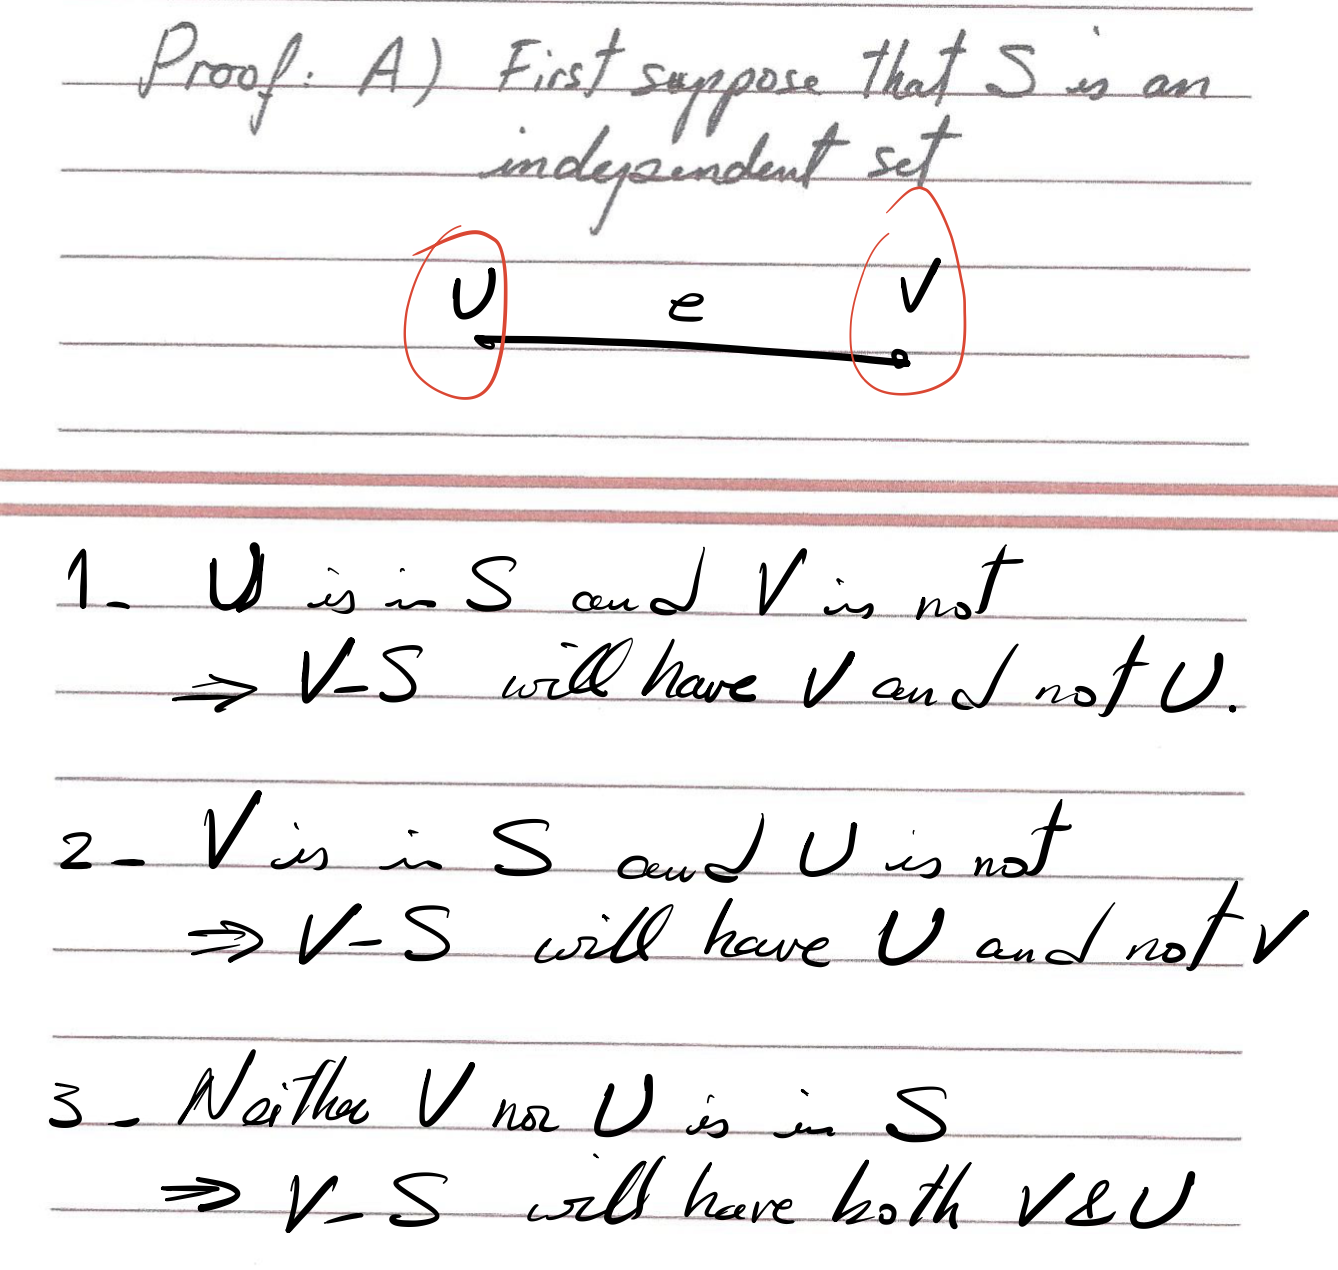 Proof: A) First suppose that S is an
independent set
U e V
1- U is in S and V is not
⇒ V-S will have V and not U.
2- V is in S and U is not
⇒ V-S will have U and not V
3- Neither V nor U is in S
⇒ V-S will have both V & U